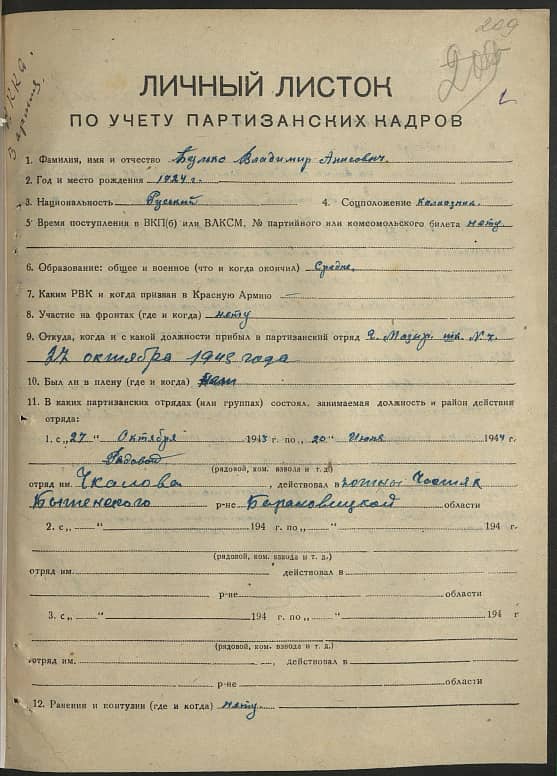 209
200
РККА.
В армии
ЛИЧНЫЙ ЛИСТОК
ПО УЧЕТУ ПАРТИЗАНСКИХ КАДРОВ
1. Фамилия, имя и отчество Булко Владимир Анисович.
2. Год и место рождения 1924 г.
3. Национальность Руський 4. Соцположение Колхозник.
5. Время поступления в ВКП(б) или ВЛКСМ, № партийного или комсомольского билета нету
6. Образование: общее и военное (что и когда окончил) Средне.
7. Каким РВК и когда призван в Красную Армию —
8. Участие на фронтах (где и когда) нету
9. Откуда, когда и с какой должности прибыл в партизанский отряд г. Мазир.
27 октября 1943 года
10. Был ли в плену (где и когда)
11. В каких партизанских отрядах (или группах) состоял, занимаемая должность и район действия
отряда:
1. с „27“ Октября 1943 г. по „20“ Июня 1944 г.
Радовой
(рядовой, ком. взвода и т. д.)
отряд им. Чкалова действовал в
Бытенского р-не Барановицкой области
2. с „ “ 194 г. по „ “ 194 г.
(рядовой, ком. взвода и т. д.)
отряд им. действовал в
р-не области
3. с „ “ 194 г. по „ “ 194 г
(рядовой, ком. взвода и т. д.)
отряд им. , действовал в
р-не области
12. Ранения и контузии (где и когда) нету